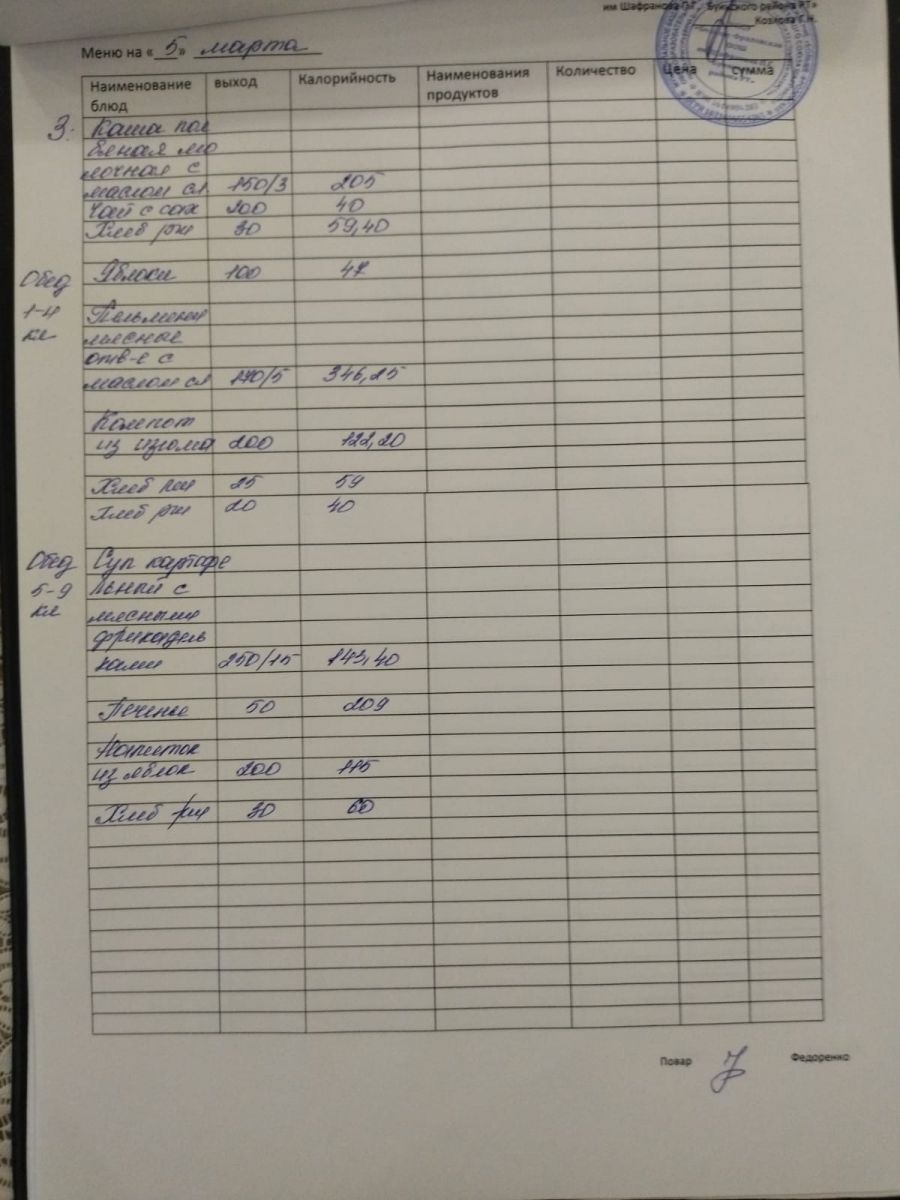 им Шафранова П.Г., Буинского района РТ»
Козлова Г.Н.
Меню на «5» марта
Наименование блюд выход Калорийность Наименования продуктов Количество Цена сумма
З. Каша пол
бяная мо
лочная с
маслом сл 150/3 205
Чай с сах 200 40
Хлеб рж 30 59,40
Обед Яблоки 100 47
1-4 Пельмени
кл мясные
отв-е с
маслом сл 170/5 346,25
Компот
из изюма 200 122,20
Хлеб пш 25 59
Хлеб рж 20 40
Обед Суп картофе
5-9 льный с
кл мясными
фрикадель
ками 250/15 143,40
Печенье 50 209
Напиток
из яблок 200 115
Хлеб рж 30 60
Повар Федоренко